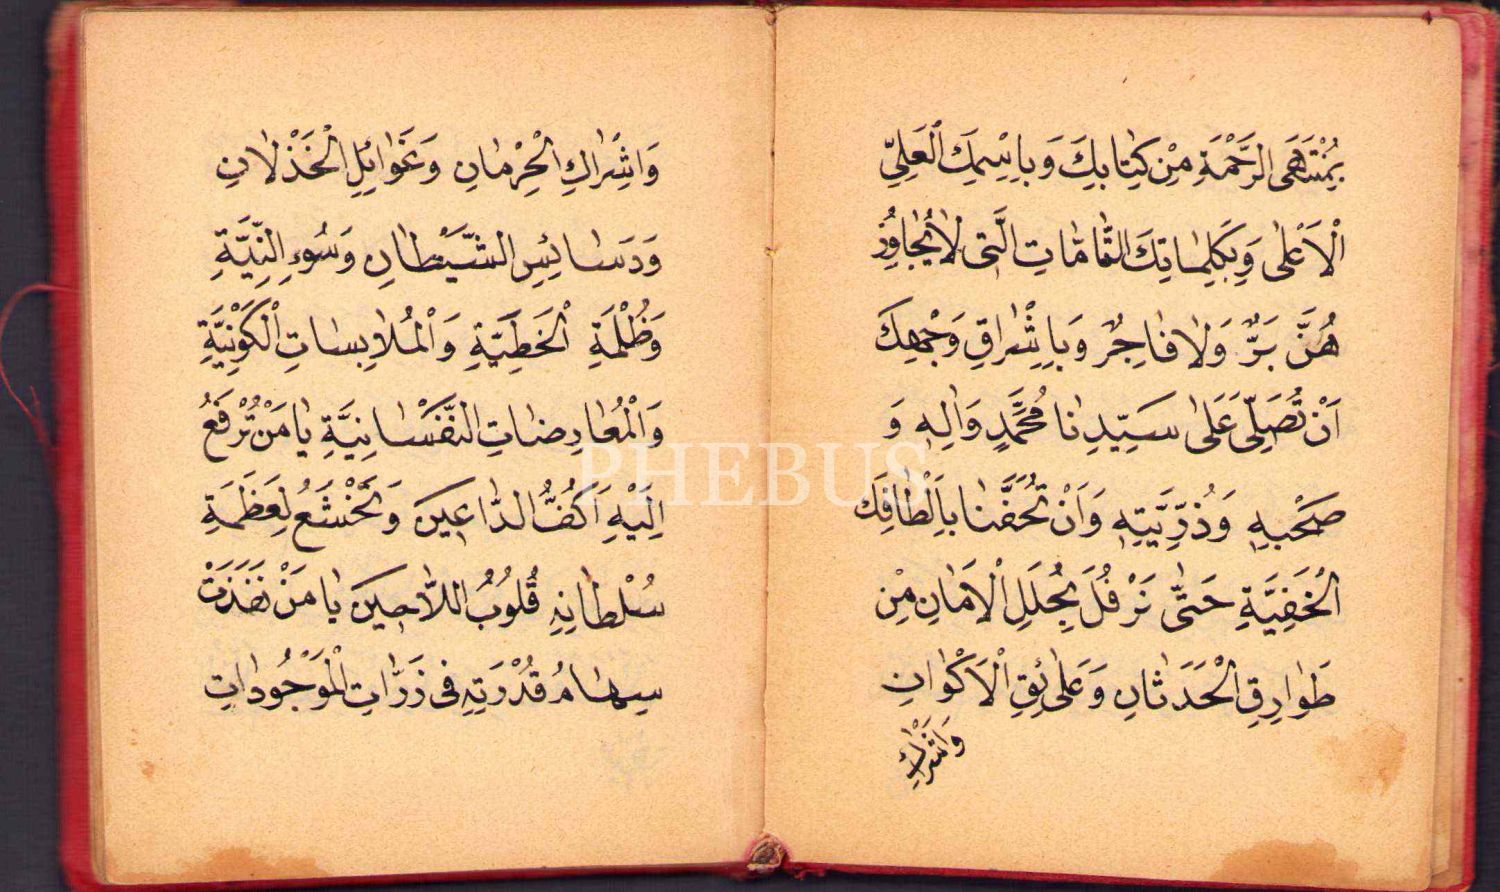 بِمُنْتَهَى الرَّحْمَةِ مِنْ كِتابِكَ وَبِاسْمِكَ الْعَلِيِّ
الْاَعْلٰى وَبِكَلِمٰاتِكَ التّٰامّٰاتِ الَّتى لٰا يُجٰاوِزُ
هُنَّ بَرٌّ وَلٰا فٰاجِرٌ وَبِاِشْرٰاقِ وَجْهِكَ
اَنْ تُصَلِّىَ عَلٰى سَيِّدِنٰا مُحَمَّدٍ وَاٰلِهٖ وَ
صَحْبِهٖ وَذُرِّيَّتِهٖ وَاَنْ تُحَفَّنٰا بِاَلْطٰافِكَ
الْخَفِيَّةِ حَتّٰى نَرْفُلَ بِحُلَلِ الْاَمٰانِ مِنْ
طَوٰارِقِ الْحَدَثٰانِ وَعَلٰائِقِ الْاَكْوٰانِ
وَاَشْرٰاكِ
وَاَشْرٰاكِ الْحِرْمٰانِ وَغَوٰائِلِ الْخَذْلٰانِ
وَدَسٰائِسِ الشَّيْطٰانِ وَسُوءِ النِّيَّةِ
وَظُلْمَةِ الْخَطِيَّةِ وَالْمُلٰابِسٰاتِ الْكَوْنِيَّةِ
وَالْمُعٰارِضٰاتِ النَّفَسٰانِيَّةِ يٰا مَنْ تُرْفَعُ
اِلَيْهِ اَكُفُّ الدّٰاعِينَ وَتَخْشَعُ لِعَظَمَةِ
سُلْطٰانِهٖ قُلُوبُ اللّٰاجِينَ يٰا مَنْ نَفَذَتْ
سِهٰامُ قُدْرَتِهٖ فى ذَرّٰاتِ الْمَوْجُودٰاتِ
PHEBUS